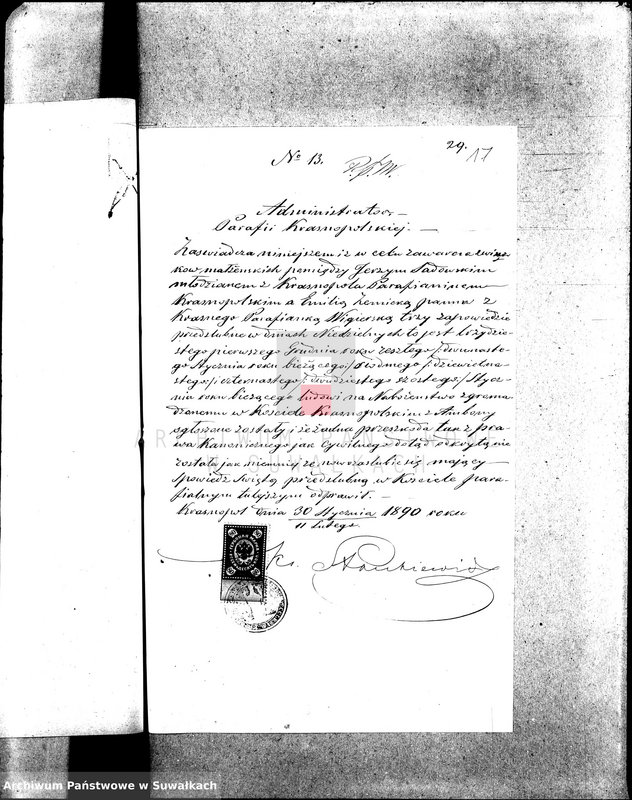 No 13.
29. 17
Administrator
Parafii Krasnopolskiej.
Zaświadcza niniejszem iż w celu zawarcia związ-
kow małżeńskich pomiędzy Jerzym Sadowskim
młodzianem z Krasnopola Parafianinem
Krasnopolskim a Emilią panną z
Krasnego Parafianką Wigierską trzy zapowiedzie
przedślubne w dniach Niedzielnych to jest trzydzie-
stego pierwszego Grudnia roku zeszłego /: dwunaste-
go Stycznia roku bieżącego:/ siódmego /: dziewietna-
stego:/ i czternastego /: dwudziestego szóstego:/ Stycz-
nia roku bieżącego ludowi na Nabożeństwo zgroma-
dzonemu w Kościele Krasnopolskim z Ambony
ogłoszone zostały i że żadna przeszkoda tak z pra-
wa Kanonicznego jak Cywilnego dotąd odkrytą nie
została jak niemniej że nowozaślubić się mający
Spowiedź Świętą przedślubną w Kościele para-
fialnym tutejszym odprawił.
Krasnopol dnia 30 Stycznia 1890 roku
11 Lutego
ks.
ARCHIWUM PAŃSTWOWE
W SUWAŁKACH
Archiwum Państwowe w Suwałkach